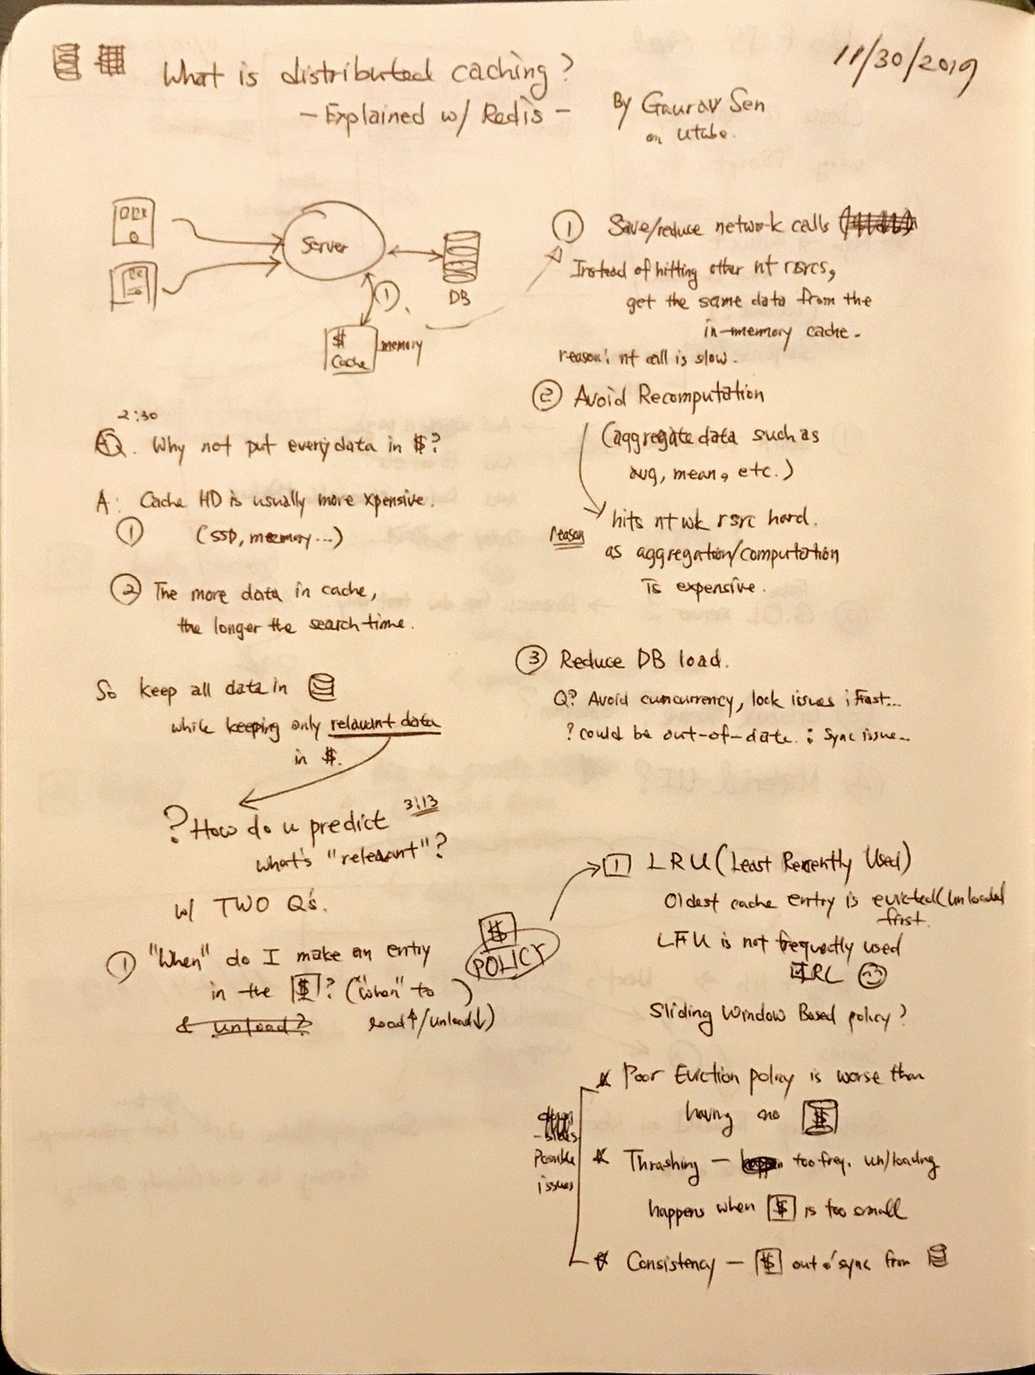 What is distributed caching?
11/30/2019
- Explained w/ Redis -
By Gaurav Sen
on utube.
Server
DB
①
$
Cache
memory
① Save/reduce network calls
Instead of hitting other nt rsrcs,
get the same data from the
in-memory cache.
reason: nt call is slow.
② Avoid Recomputation
(aggregate data such as
avg, mean, etc.)
hits ntwk rsrc hard.
reason
as aggregation/computation
is expensive.
③ Reduce DB load.
Q? Avoid cuncurrency, lock issues ; Fast...
? could be out-of-date. ; Sync issue...
2:30
Q. Why not put every data in $?
A: Cache HD is usually more xpensive.
① (SSD, memory...)
② The more data in cache,
the longer the search time.
So keep all data in
while keeping only relevant data
in $.
? How do u predict 3:13
what's "relevant"?
w/ TWO Q's.
① "When" do I make an entry
in the $? ("when" to )
& unload? load↑/unload↓)
$
POLICY
1 LRU (Least Recently Used)
Oldest cache entry is evicted(unloaded
first.
LFU is not frequently used
IRL
Sliding Window Based policy?
Possible
issues
* Poor Eviction policy is worse than
having no $
* Thrashing - too freq. un/loading
happens when $ is too small
* Consistency - $ out o' sync from